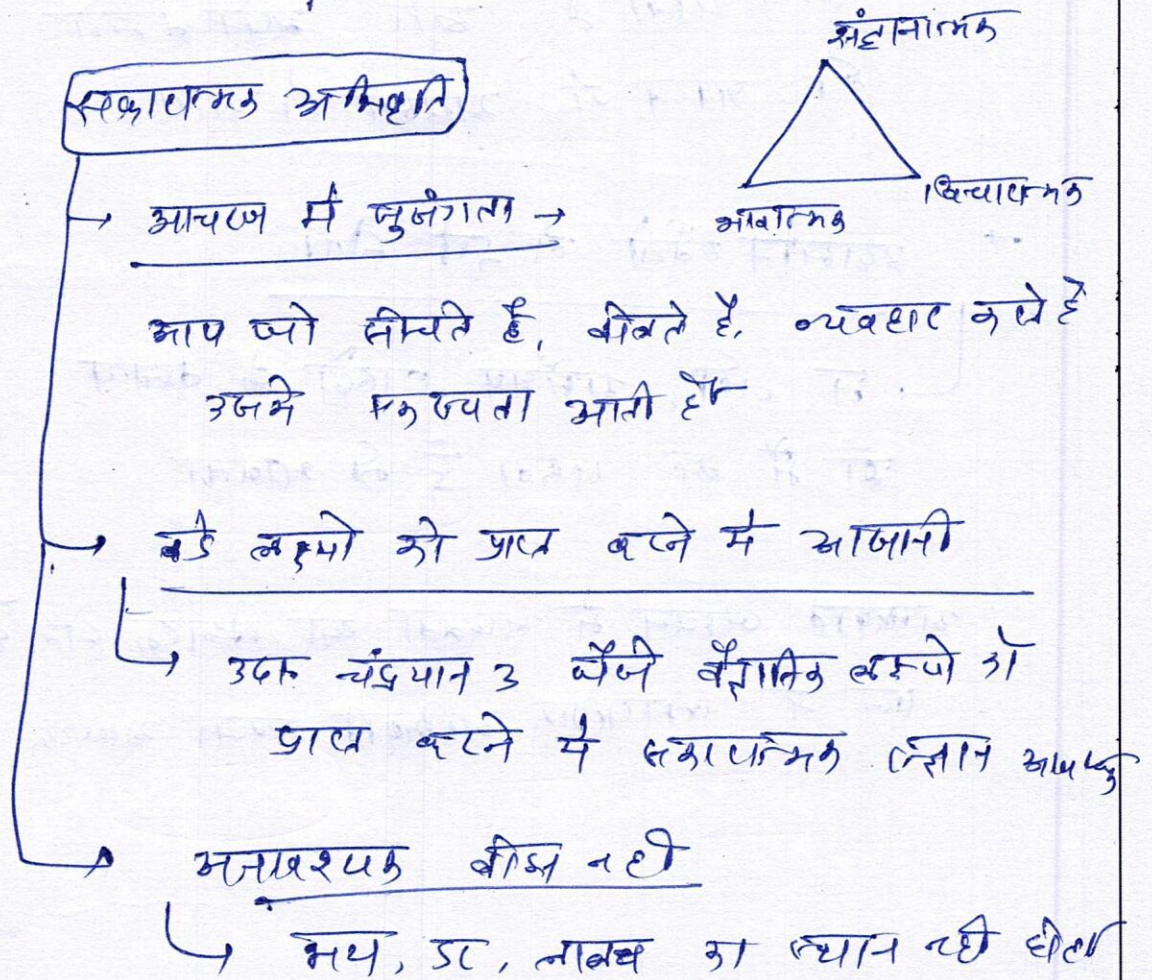 संज्ञानात्मक
सकारात्मक अभिवृत्ति
क्रियात्मक
भावात्मक
आचरण में सुसंगतता →
आप जो सोचते हैं, बोलते है, व्यवहार करते है
उसमे एकरूपता आती है
बडे लक्ष्यो को प्राप्त करने मे आसानी
उदा० चंद्रयान 3 जैसे वैज्ञानिक लक्ष्यो को
प्राप्त करने मे सकारात्मक रुझान आवश्यक
अनावश्यक बोझ नही
भय, डर, लालच का स्थान नही होता